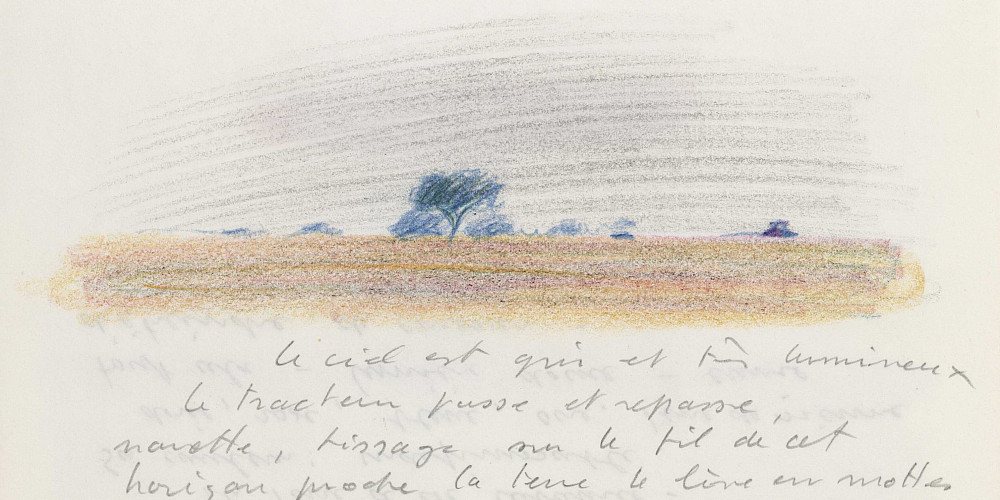 le ciel est gris et très lumineux
le tracteur passe et repasse,
navette, tissage sur le fil de cet
horizon proche la terre se lève en mottes